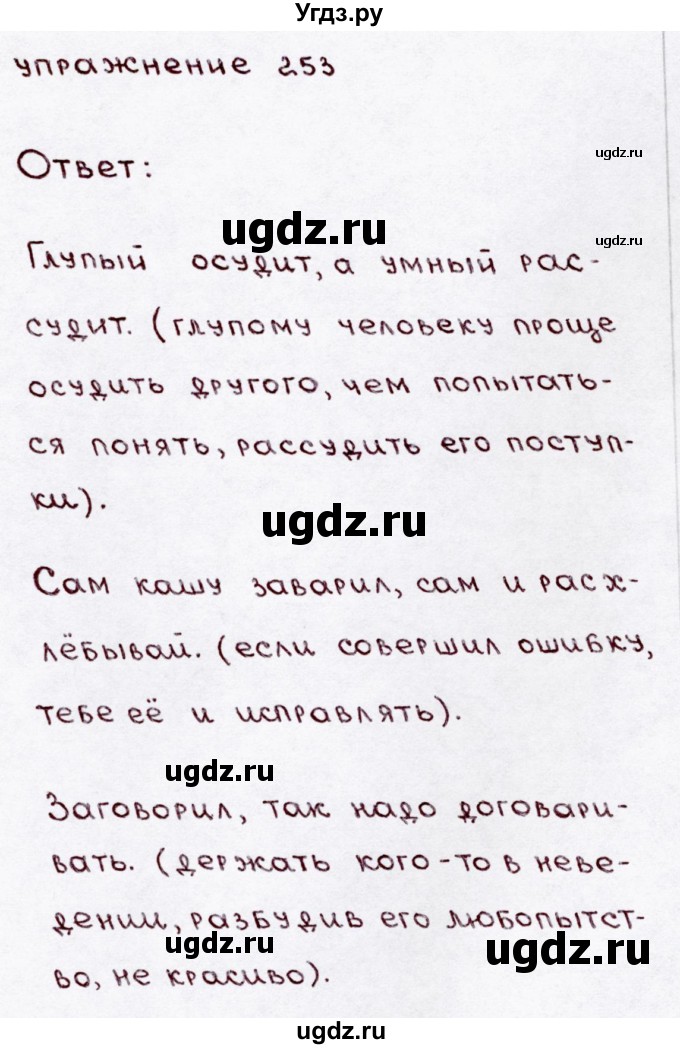 Угдз.ру
упражнение 253
ugdz.ru
Ответ:
ugdz.ru
ugdz.ru
Глупый осудит, а умный рас-
судит. (глупому человеку проще
осудить другого, чем попытать-
ся понять, рассудить его поступ-
ки).
ugdz.ru
Сам кашу заварил, сам и расх-
лёбывай. (если совершил ошибку,
тебе её и исправлять).
ugdz.ru
Заговорил, так надо договари-
вать. (держать кого-то в неве-
дении, разбудив его любопытст-
ugdz.ru
ugdz.ru
во, не красиво).
ugdz.ru